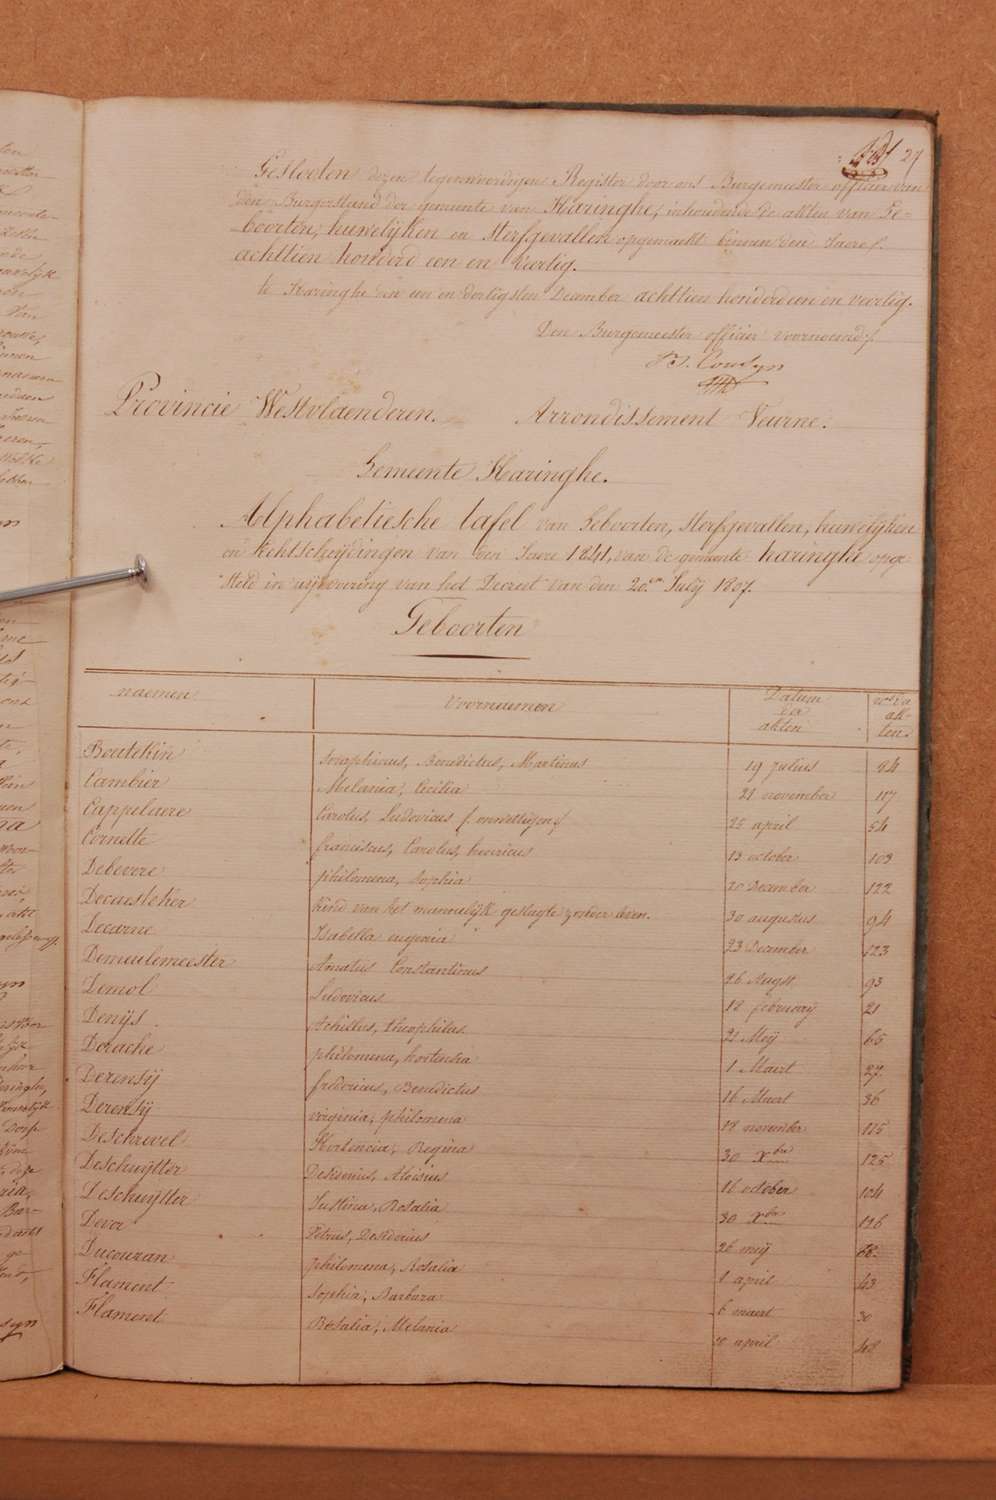 27
Gesloeten dezen tegenwoordigen Register door ons Burgemeester officier van
den Burgerstand der gemeente van Haringhe, inhoudende de akten van Ge-
boorten, huwelijken en Sterfgevallen opgemaekt binnen den Jaere
achttien honderd een en veertig.
te Haringhe den een en dertigsten December achttien honderd een en veertig.
Den Burgemeester officier voornoemd
Provincie Westvlaenderen. Arrondissement Veurne.
Gemeente Haringhe.
Alphabetiesche tafel van Geboorten, sterfgevallen, huwelijken
en Echtscheijdingen van den Jaere 1841, van de gemeente haringhe opge-
steld in uijtvoering van het Decreet van den 20en Julij 1807.
Geboorten
naemen voornaemen Datum der akten nos der ak-ten.
Boutekin Seraphinus, Benedictus, Martinus 19 julius 84
Cambier Melania, Cecilia 21 november 117
Cappelaere Carolus Ludovicus (onwettigen) 25 april 54
Cornette franciscus, Carolus, henricus 13 october 103
Debevere philomena, sophia 20 December 122
Decuesteker Kind van het mannelijk geslagte zonder leven. 30 augustus 94
Decarne Isabella eugenia 23 December 123
Demeulemeester Amatus Constantinus 26 Augst 93
Demol Ludovicus 18 february 21
Denijs Achilles, theophilus 21 Meij 65
Derache philomena, hortensia 1 Maert 27
Derensij fredericus, Benedictus 16 Maert 36
Derensij virginia, philomena 18 november 115
Deschrevel Hortencia, Regina 30 Xbre 125
Deschuijtter Desiderius, Aloisius 16 october 104
Deschuijtter Justina, Rosalia 30 Xbre 126
Devos Petrus, Desiderius 26 meij 68
Ducouran philomena, Rosalia 1 april 43
Flament Sophia, Barbara 6 maert 30
Flament Rosalia, Melania 10 april 48